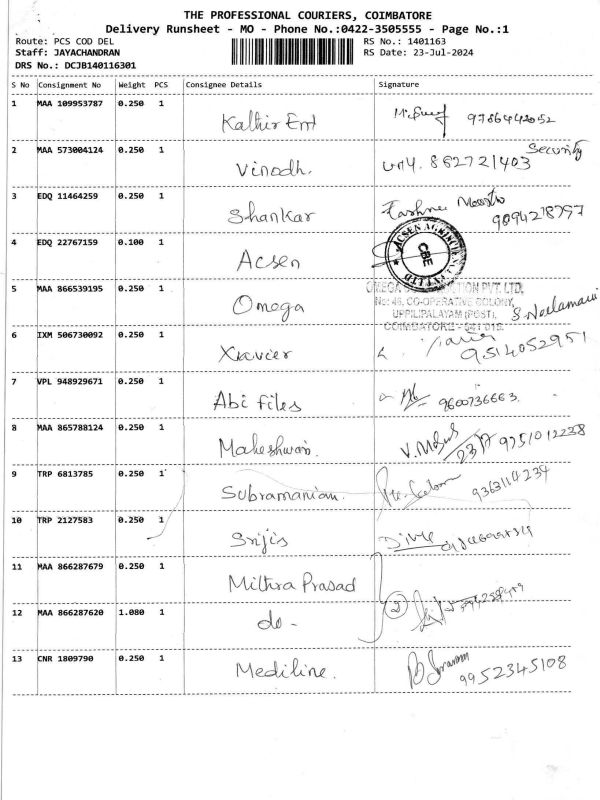 THE PROFESSIONAL COURIERS, COIMBATORE
Delivery Runsheet - MO - Phone No.:0422-3505555 - Page No.:1
Route: PCS COD DEL
RS No.: 1401163
Staff: JAYACHANDRAN
RS Date: 23-Jul-2024
DRS No.: DCJB140116301
S No Consignment No Weight PCS Consignee Details Signature
1 MAA 109953787 0.250 1 Kathir Ent 9786442052
2 MAA 573004124 0.250 1 Vinodh. 882721403 Security
3 EDQ 11464259 0.250 1 Shankar 9894218797
4 EDQ 22767159 0.100 1 Acsen
CBE
5 MAA 866539195 0.250 1 Omega
OMEGA PVT. LTD.
No: 46, CO-OPERATIVE COLONY,
UPPILIPALAYAM (POST), S. Neelamani
COIMBATORE - 641 015.
6 IXM 506730092 0.250 1 Xavier 9514052951
7 VPL 948929671 0.250 1 Abi files 9600736663.
8 MAA 865788124 0.250 1 Maheshwari. 23/7 9751012238
9 TRP 6813785 0.250 1 Subramanian. 9363114234
10 TRP 2127583 0.250 1 Srijis
11 MAA 866287679 0.250 1 Mithra Prasad
12 MAA 866287620 1.080 1 do - 2
13 CNR 1809790 0.250 1 Mediline. 9952345108